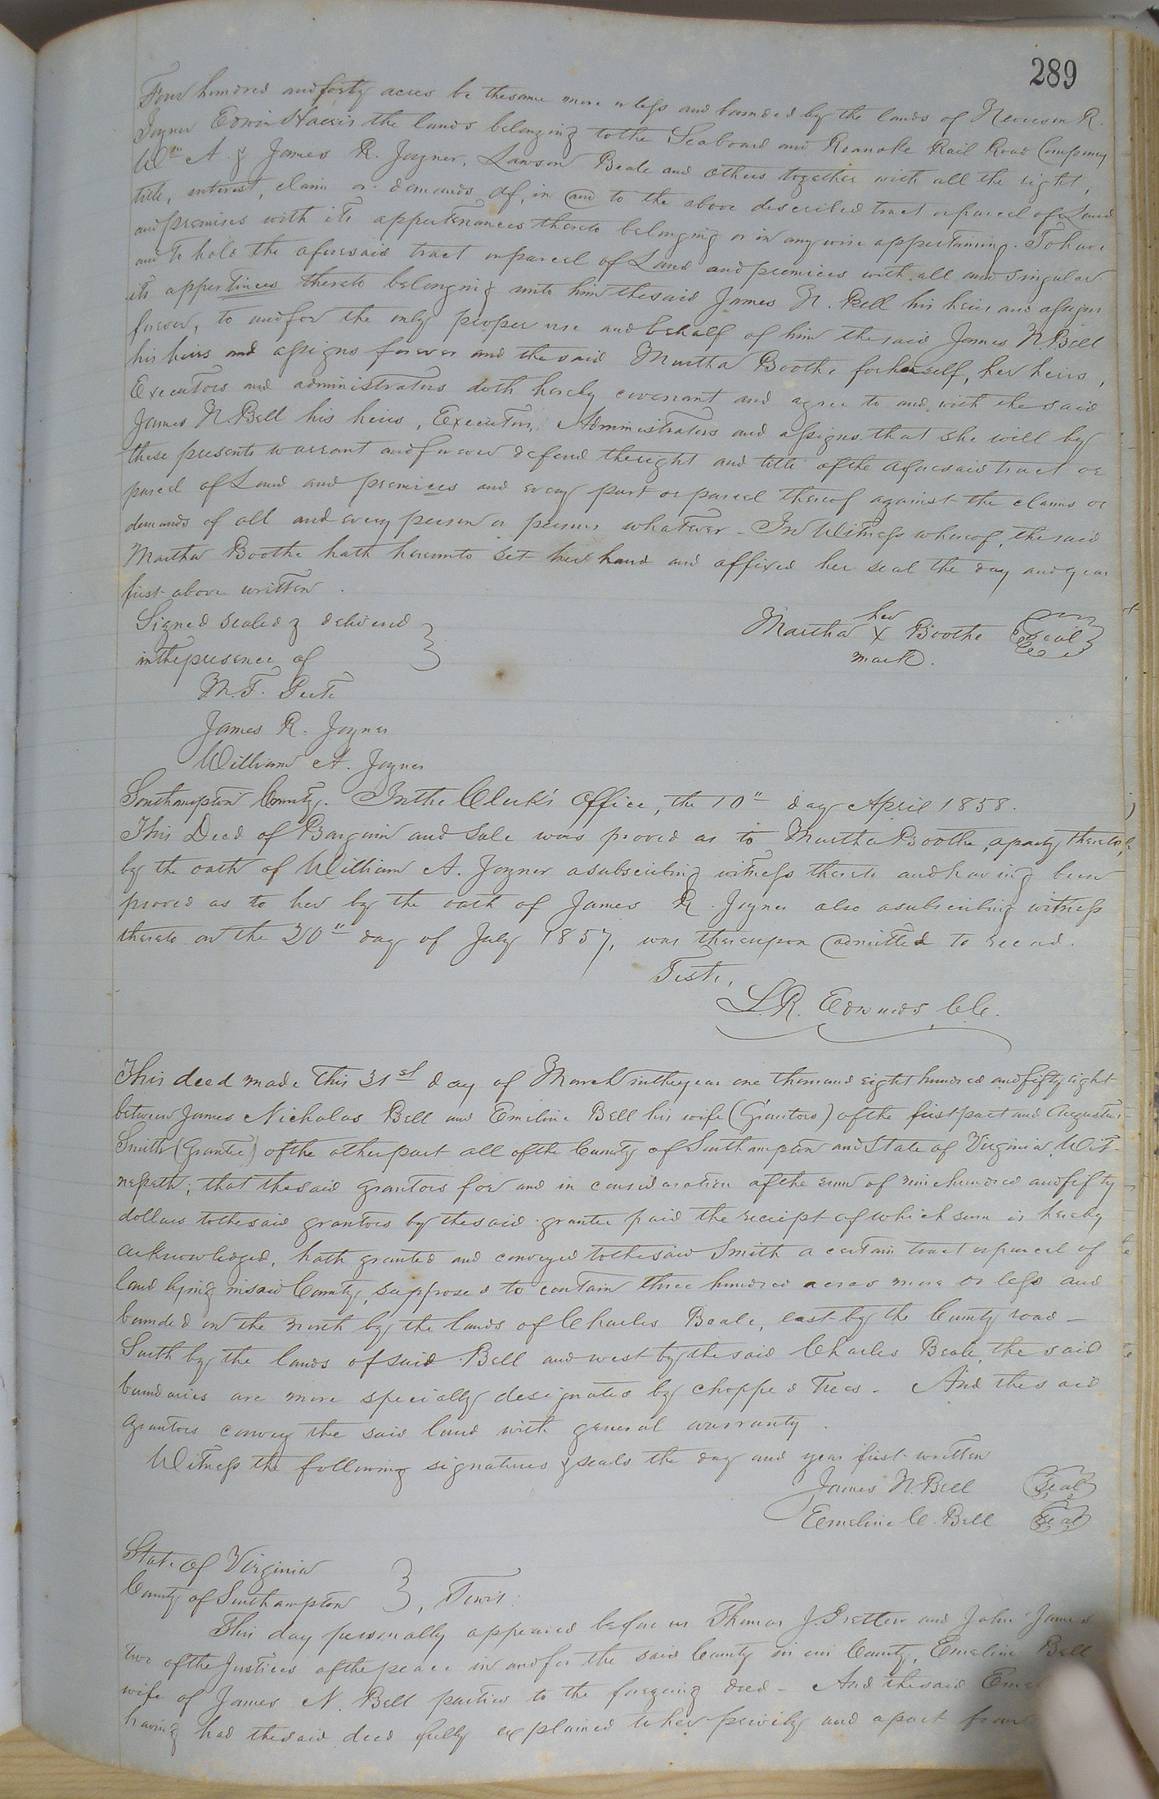 289
Four hundred and forty acres be the same more or less and bounded by the lands of Nevison R.
Joyner Edwin Harris the lands belonging to the Seaboard and Roanoke Rail Road Company
Wm A. & James R. Joyner, Lawson Beale and others together with all the right,
title, interest, claim or demands of, in and to the above described tract or parcel of Land
and premises with its appertenances thereto belonging or in any wise appertaining. To have
and to hold the aforesaid tract or parcel of Land and premices with all and singular
its appertinces thereto belonging unto him the said James N. Bell his heirs and assigns
forever, to and for the only proper use and behalf of him the said James N Bell
his heirs and assigns forever and the said Martha Boothe for herself, her heirs,
Executors and administrators doth hereby covenant and agree to and with the said
James N. Bell his heirs, Executors, Administrators and assigns that she will by
these presents warrant and forever defend the right and title of the aforesaid tract or
parcel of Land and premices and every part or parcel thereof against the claims or
demands of all and every person or persons whatever - In Witness whereof, the said
Martha Boothe hath hereunto set her hand and affixed her seal the day and year
first above written.
Signed sealed & delivered
in the presence of
her
Martha X Boothe Seal
mark.
James R. Joyner
William A. Joyner
Southampton County. In the Clerk's Office, the 10" day April 1858.
This Deed of Bargain and Sale was proved as to Martha Boothe, a party thereto,
by the oath of William A. Joyner a subscribing witness thereto and having been
proved as to her by the oath of James R. Joyner also a subscribing witness
thereto on the 20" day of July 1857, was thereupon admitted to record.
Teste,
L. R. Edwards, C.C.
This deed made this 31st day of March in the year one thousand eight hundred and fifty eight
between James Nicholas Bell and Emeline Bell his wife (Grantors) of the first part and Augustus
Smith (Grantee) of the other part all of the County of Southampton and State of Virginia Wit-
nesseth; that the said grantors for and in consideration of the sum of nine hundred and fifty
dollars to the said grantors by the said grantee paid the receipt of which sum is hereby
acknowledged, hath granted and conveyed to the said Smith a certain tract or parcel of
land lying in said County, supposed to contain three hundred acres more or less and
bounded on the north by the lands of Charles Beale, east by the County road -
South by the lands of said Bell and west by the said Charles Beale, the said
boundaries are more specially designated by chopped trees - And the said
grantors convey the said land with general warranty.
Witness the following signatures & seals the day and year first written
James N. Bell Seal
Emeline C. Bell Seal
State of Virginia
County of Southampton, Towit:
This day personally appeared before us Thomas J. Pretlow and John James
two of the Justices of the peace in and for the said County in our County, Emeline Bell
wife of James N. Bell parties to the foregoing deed - And the said
having had the said deed fully explained to her privily and apart from